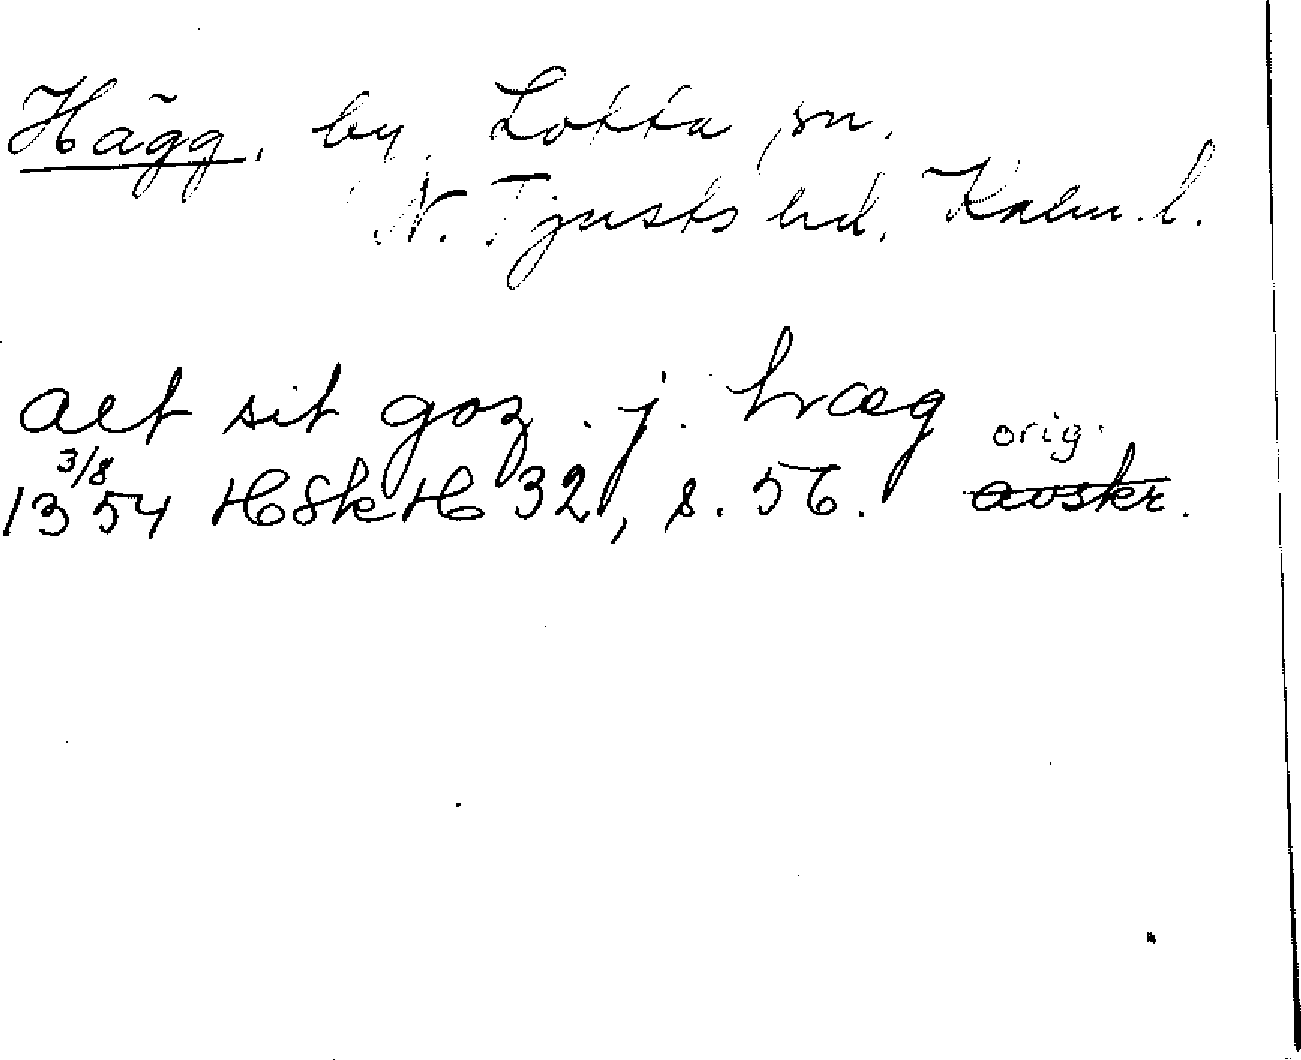 Hägg, by, Lofta sn.
N. Tjusts hd. Kalm. l.
alt sit goz . j. hæg orig.
13 3/8 54 HSkH 32, s. 56. avskr.